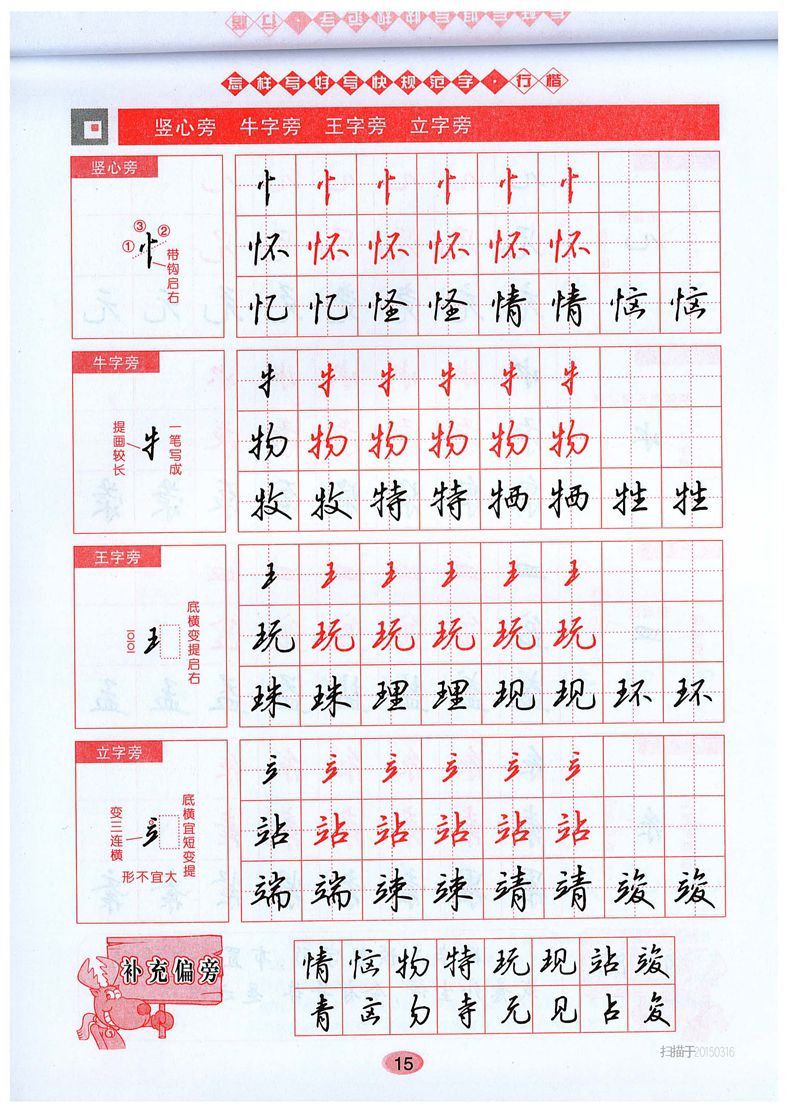 怎样写好写快规范字·行楷
竖心旁 牛字旁 王字旁 立字旁
竖心旁
③
① ②
带钩启右
忄 忄 忄 忄 忄 忄
怀 怀 怀 怀 怀 怀
忆 忆 怪 怪 情 情 恼 恼
牛字旁
提画较长
一笔写成
牜 牜 牜 牜 牜 牜
物 物 物 物 物 物
牧 牧 特 特 牺 牺 牲 牲
王字旁
底横变提启右
王 王 王 王 王 王
玩 玩 玩 玩 玩 玩
珠 珠 理 理 现 现 环 环
立字旁
变三连横
底横宜短变提
形不宜大
立 立 立 立 立 立
站 站 站 站 站 站
端 端 竦 竦 靖 靖 竣 竣
补充偏旁
情 恼 物 特 玩 现 站 竣
青 㐫 勿 寺 元 见 占 夋
15
扫描于20150316